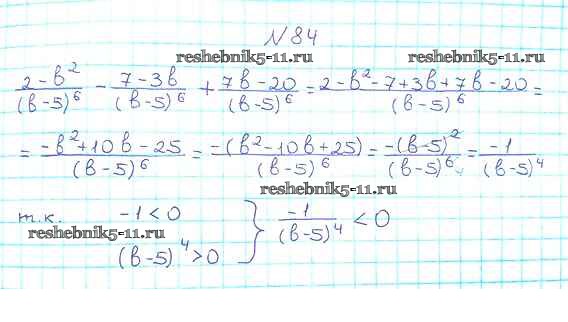 №84
reshebnik5-11.ru reshebnik5-11.ru
(2-в²)/(в-5)⁶ - (7-3в)/(в-5)⁶ + (7в-20)/(в-5)⁶ = (2-в²-7+3в+7в-20)/(в-5)⁶ =
= (-в²+10в-25)/(в-5)⁶ = (-(в²-10в+25))/(в-5)⁶ = (-(в-5)²)/(в-5)⁶ = (-1)/(в-5)⁴
reshebnik5-11.ru
т.к. -1<0 } (-1)/(в-5)⁴ < 0
reshebnik5-11.ru
(в-5)⁴>0